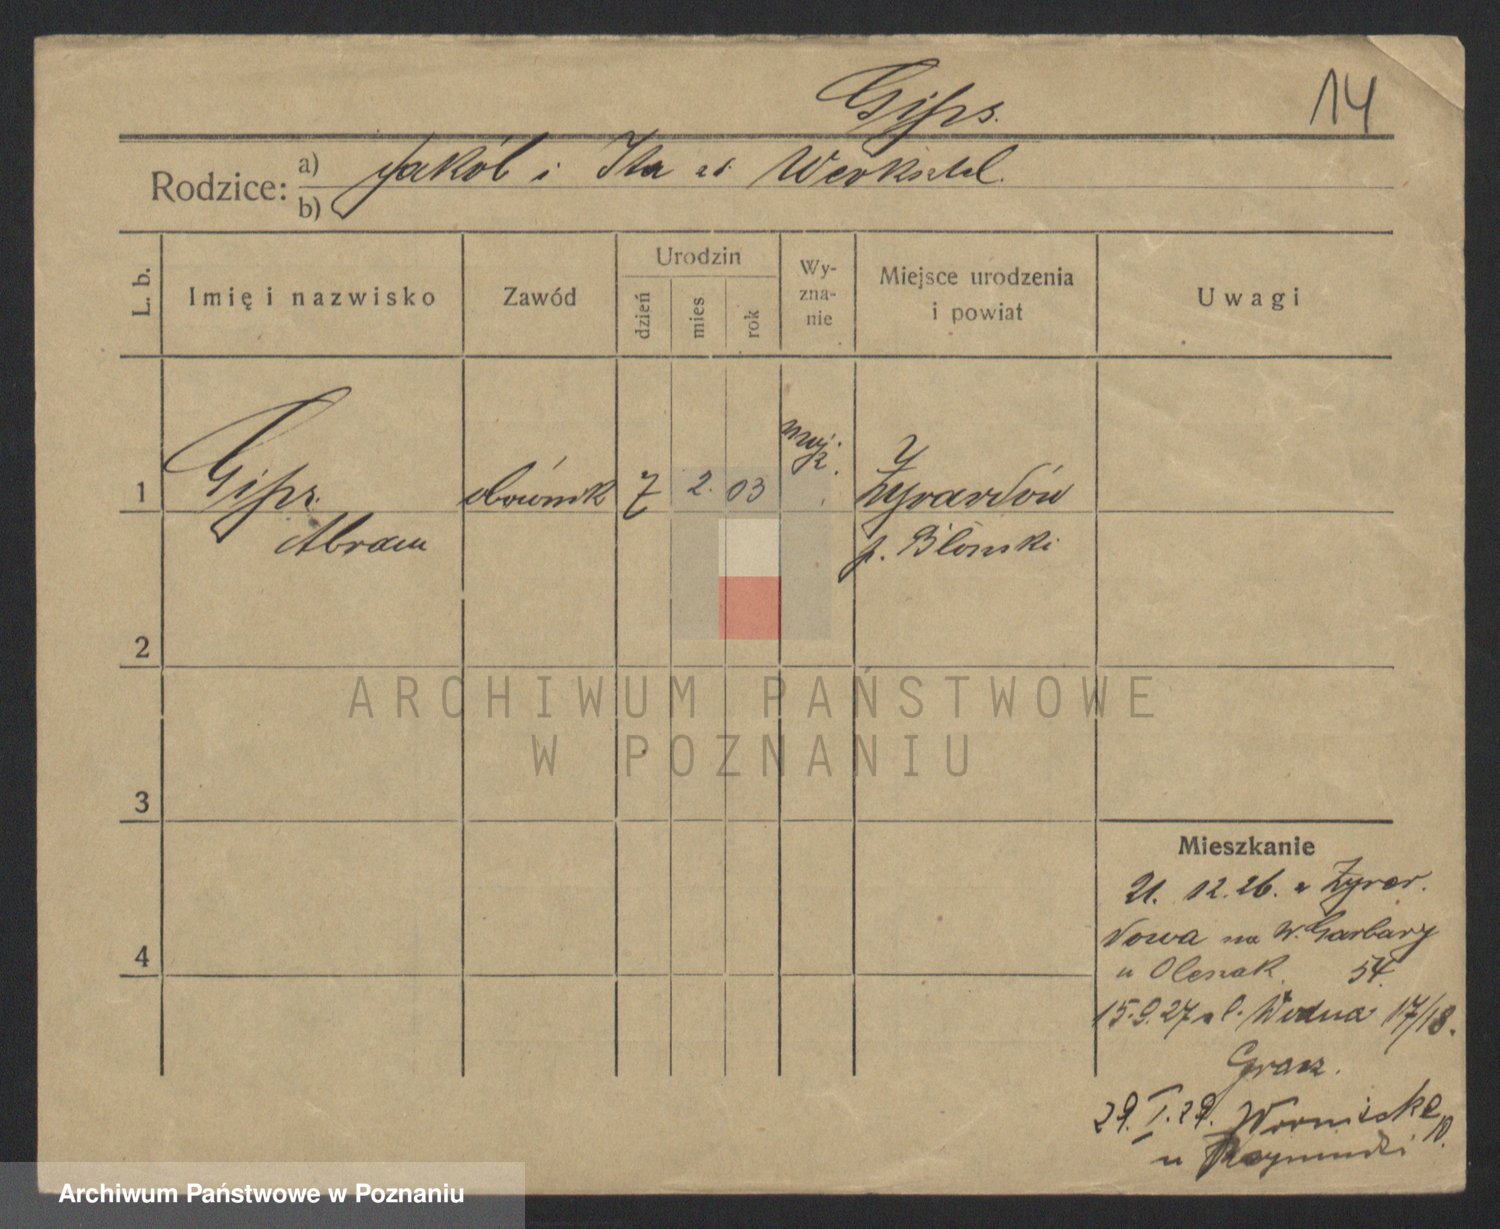 Gips.
14
Rodzice: a) Jakób i Ita
b)
L. b.
Imię i nazwisko
Zawód
Urodzin
dzień
mies
rok
Wy-
zna-
nie
Miejsce urodzenia
i powiat
Uwagi
1
Gips
Abram
7
2.
03
mojż.
Żyrardów
p. Błoński
2
3
4
Mieszkanie
21. 12. 26. z Żyrar.
dowa na W. Garbary
u Olszak 54.
15.9.27 Wodna 17/18.
29. I. 29.
u
ARCHIWUM PAŃSTWOWE
W POZNANIU
Archiwum Państwowe w Poznaniu